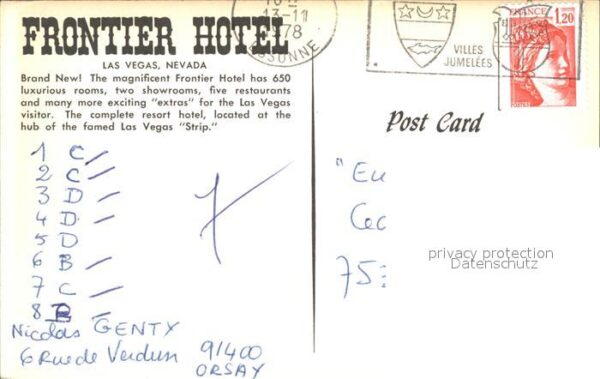 FRONTIER HOTEL
LAS VEGAS, NEVADA
Brand New! The magnificent Frontier Hotel has 650
luxurious rooms, two showrooms, five restaurants
and many more exciting "extras" for the Las Vegas
visitor. The complete resort hotel, located at the
hub of the famed Las Vegas "Strip."
13-11
1978
VILLES
JUMELÉES
FRANCE
1,20
Post Card
1 C
2 C
3 D
4 D
5 D
6 B
7 C
8 B
Nicolas GENTY
6 Rue de Verdun 91400
ORSAY
"Eu
Cec
75
privacy protection
Datenschutz